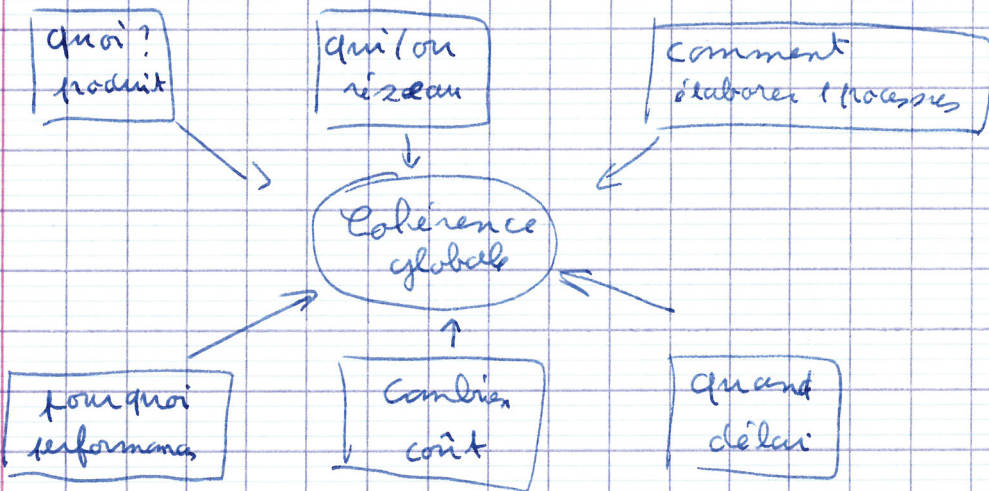 quoi?
produit
qui/ou
réseau
comment
élaborer / processus
Cohérence
globale
pourquoi
performances
Combien
coût
quand
délai